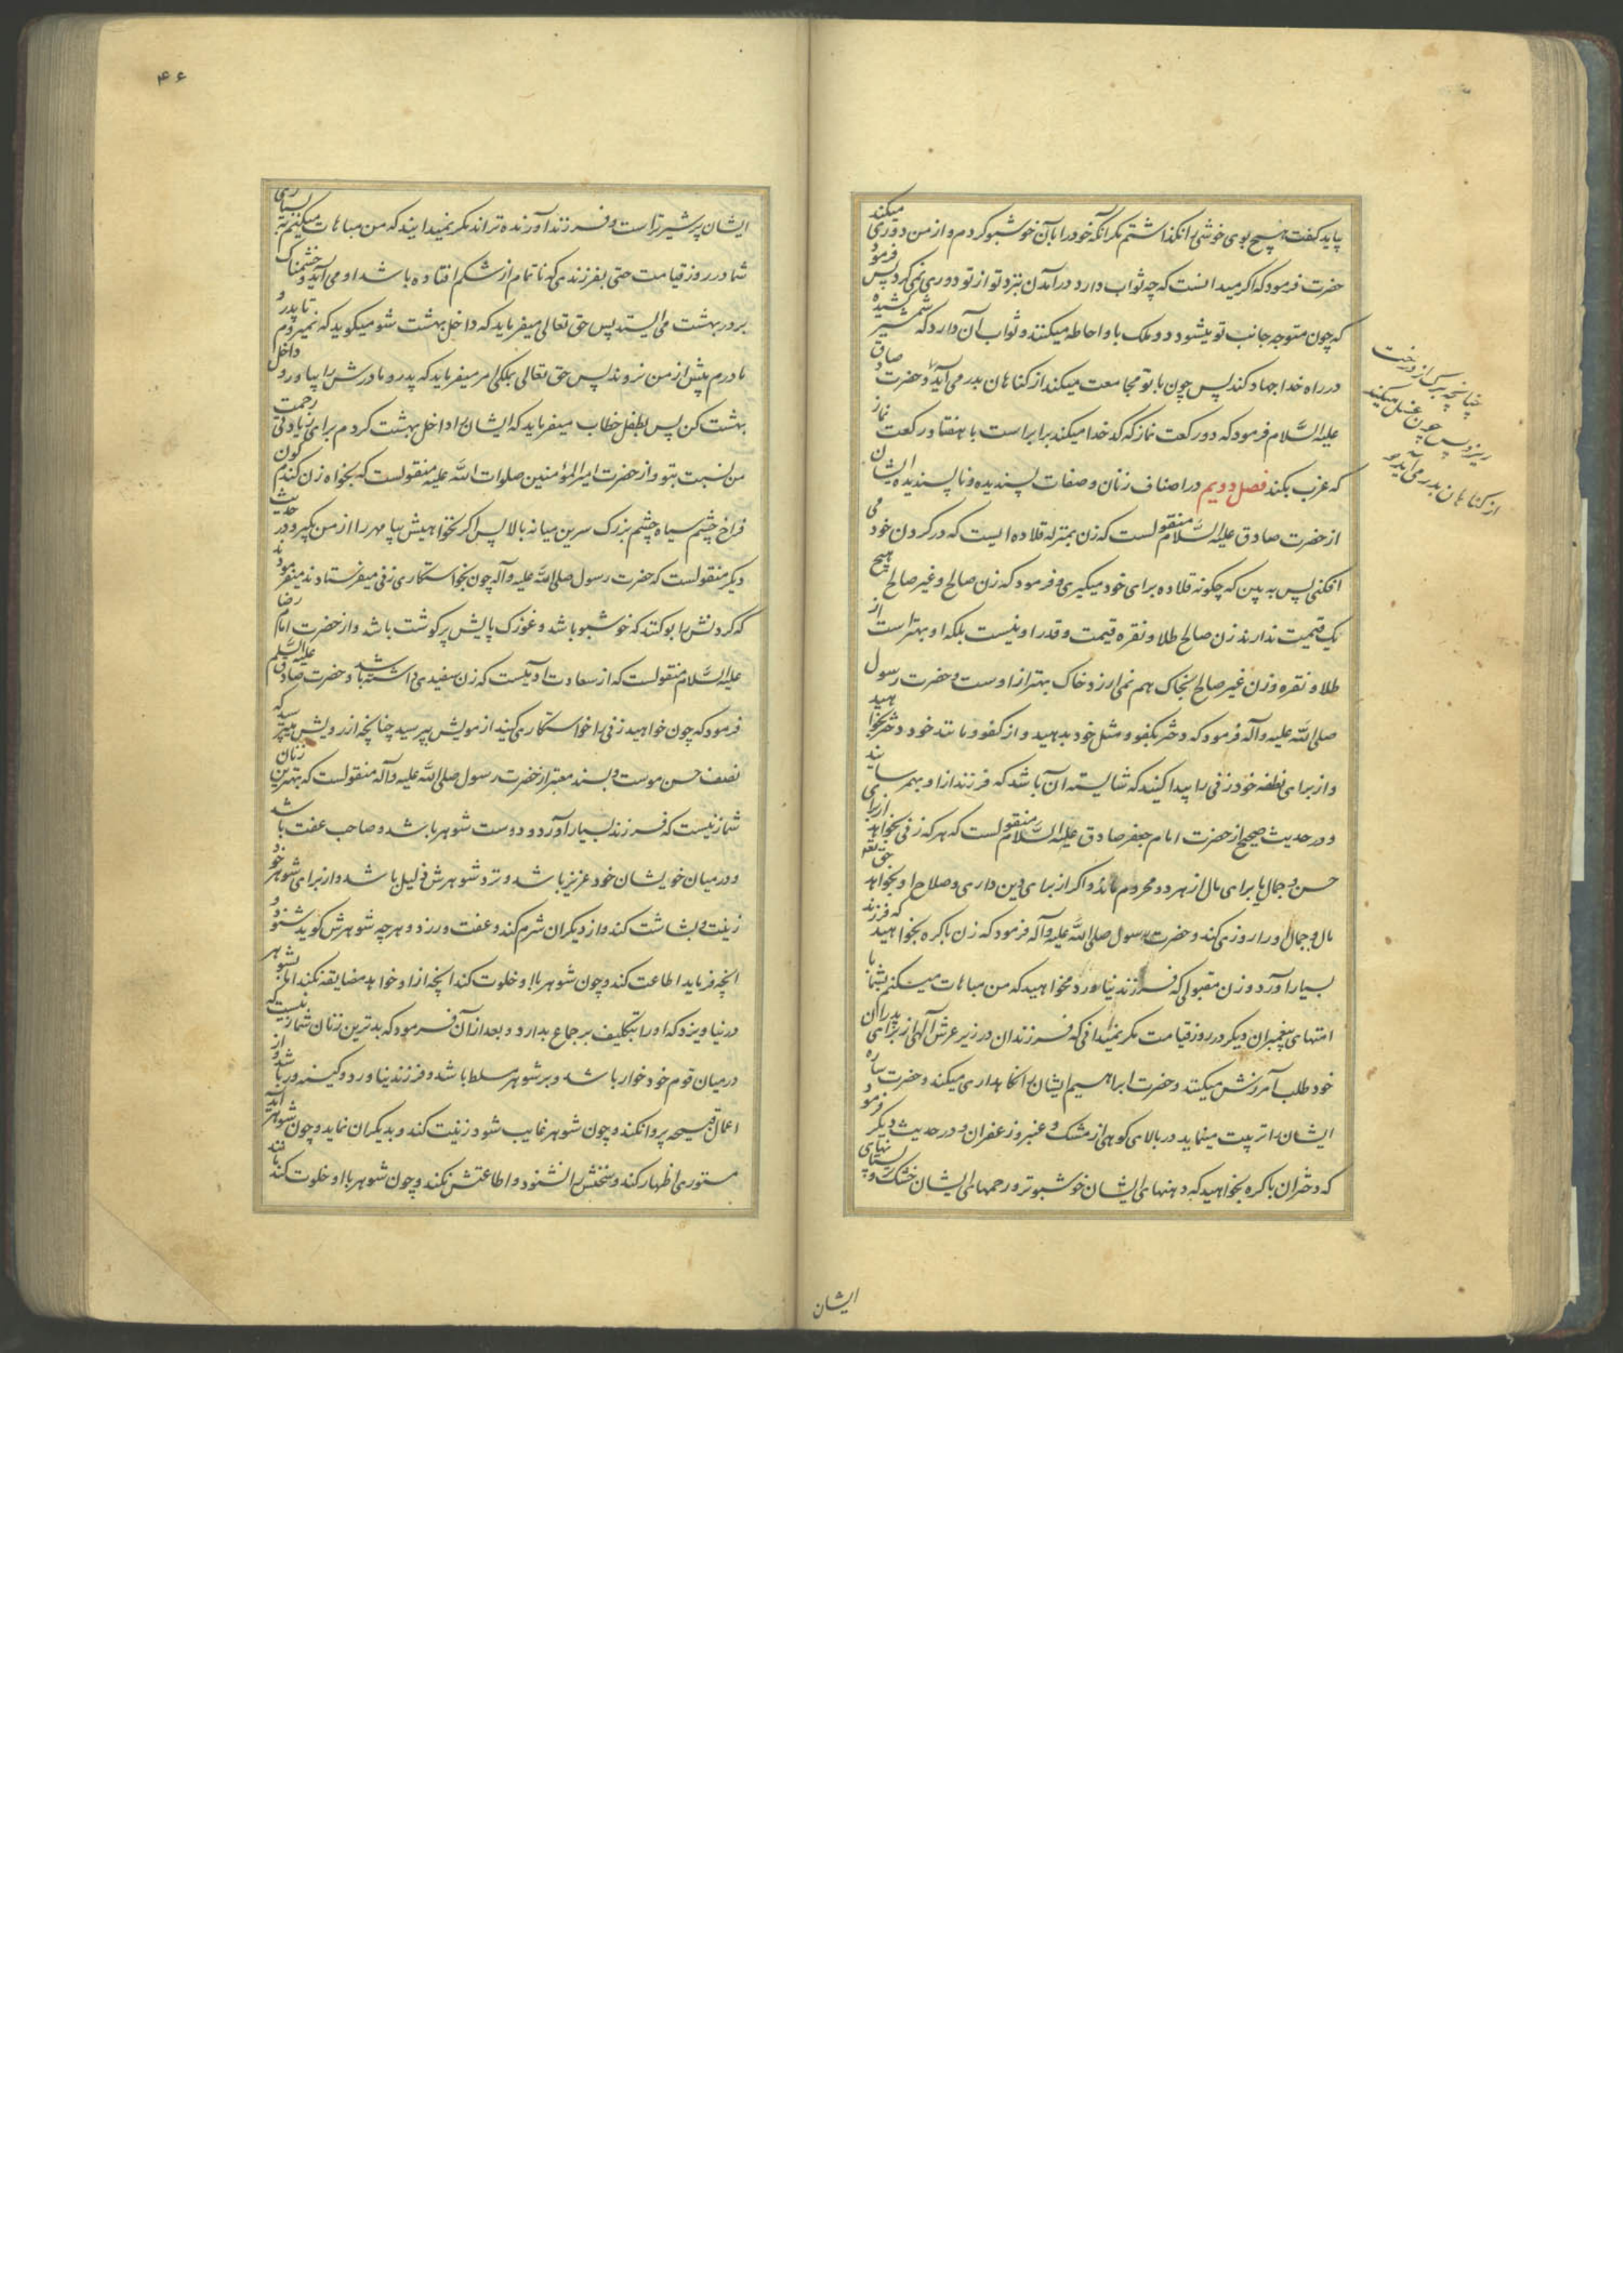 پاید کفت هیچ بوی خوشی را نکذاشتم مکر آنکه خود را بآن خوشبو کردم و از من دوری میکند
حضرت فرمود که اکر میدانست که چه ثواب دارد در آمدن بنزد تو از تو دوری نمی کرد پس فرمود
که چون متوجه جانب تو میشود دو ملک باو احاطه میکنند و ثواب آن دارد که شمشیر کشیده
در راه خدا جهاد کند پس چون با تو مجامعت میکند از کناهان بدر می آید و حضرت صادق
علیه السّلام فرمود که دو رکعت نماز که کدخدا میکند برابر است با هفتاد رکعت نماز
که عزب بکند فصل دویم در اصناف زنان و صفات پسندیده و ناپسندیده ایشان
از حضرت صادق علیه السّلام منقولست که زن بمنزله قلاده ایست که در کردن خود می
افکنی پس به بین که چکونه قلاده برای خود میکیری و فرمود که زن صالح و غیر صالح هیچ
یک قیمت ندارند زن صالح طلا و نقره قیمت و قدر او نیست بلکه او بهتر است از
طلا و نقره و زن غیر صالح بخاک هم نمی ارزد و خاک بهتر از اوست و حضرت رسول
صلی الله علیه و آله فرمود که دختر بکفو و مثل خود بدهید و از کفو و مانند خود دختر بخواهید
و از برای نطفه خود زنی را پیدا کنید که شایسته آن باشد که فرزند از او بهمرسانید
و در حدیث صحیح از حضرت امام جعفر صادق علیه السّلام منقولست که هر که زنی بخواهد از برای
حسن و جمال یا برای مال از هر دو محروم ماند و اکر از برای دین داری و صلاح او بخواهد حق تعه
مال و جمال او را روزی کند و حضرت رسول صلی الله علیه و آله فرمود که زن باکره بخواهید که فرزند
بسیار آورد و زن مقبولی که فرزند نیاورد مخواهید که من مباهات میکنم بشما با
امتهای پیغمبران دیکر در روز قیامت مکر نمیدانی که فرزندان در زیر عرش آلهی از برای پدران
خود طلب آمرزش میکنند و حضرت ابراهیم ایشان را نکاهداری میکند و حضرت ساره
ایشان را تربیت مینماید در بالای کوهی از مشک و عنبر و زعفران و در حدیث دیکر فرمود
که دختران باکره بخواهید که دهنهای ایشان خوشبوتر و رحمهای ایشان خشک و پستانهای
چنانچه برک از درخت
ریزد پس چون غسل میکند
از کناهان بدر می آید و
ایشان
۴۶
ایشان پر شیرتر است و فرزند آورنده تراند مکر نمیدانید که من مباهات میکنم به بسیاری
شما در روز قیامت حتی بفرزندی که ناتمام از شکم افتاده باشد او می آید و خشمناک
بر در بهشت می ایستد پس حق تعالی میفرماید که داخل بهشت شو میکوید که نمیروم تا پدر و
مادرم پیش از من نروند پس حق تعالی بملکی امر میفرماید که پدر و مادرش را بیاور و داخل
بهشت کن پس بطفل خطاب میفرماید که ایشان را داخل بهشت کردم برای زیادتی رحمت
من نسبت بتو و از حضرت امیر المؤمنین صلوات الله علیه منقولست که بخواه زن کندم کون
فراخ چشم سیاه چشم بزرک سرین میانه بالا پس اکر نخواهیش بیا مهر را از من بکیر و در حدیث
دیکر منقولست که حضرت رسول صلی الله علیه و آله چون بخواستکاری زنی میفرستادند میفرمودند
که کردنش را بو کنند که خوشبو باشد و غوزک پایش پر کوشت باشد و از حضرت امام رضا
علیه السّلام منقولست که از سعادت آدمیست که زن سفیدی داشته باشد و حضرت صادق علیه السلم
فرمود که چون خواهید زنی را خواستکاری کنید از مویش بپرسید چنانچه از رویش میپرسید که
نصف حسن موست و بسند معتبر از حضرت رسول صلی الله علیه و آله منقولست که بهترین زنان
شما زنیست که فرزند بسیار آورد و دوست شوهر باشد و صاحب عفت باشد
و در میان خویشان خود عزیز باشد و نزد شوهرش ذلیل باشد و از برای شوهر خود
زینت و بشاشت کند و از دیکران شرم کند و عفت ورزد و هر چه شوهرش کوید شنود و
آنچه فرماید اطاعت کند و چون شوهر با او خلوت کند آنچه از او خواهد مضایقه نکند اما بشوهر
در نیاویزد که او را بتکلیف بر جماع بدارد و بعد از آن فرمود که بدترین زنان شما زنیست که
در میان قوم خود خوار باشد و بر شوهر مسلط باشد و فرزند نیاورد و کینه ور باشد و از
اعمال قبیحه پروا نکند و چون شوهر غایب شود زینت کند و بدیکران نماید و چون شوهر آید
مستوری اظهار کند و سخنش را نشنود و اطاعتش نکند و چون شوهر با او خلوت کند مانند